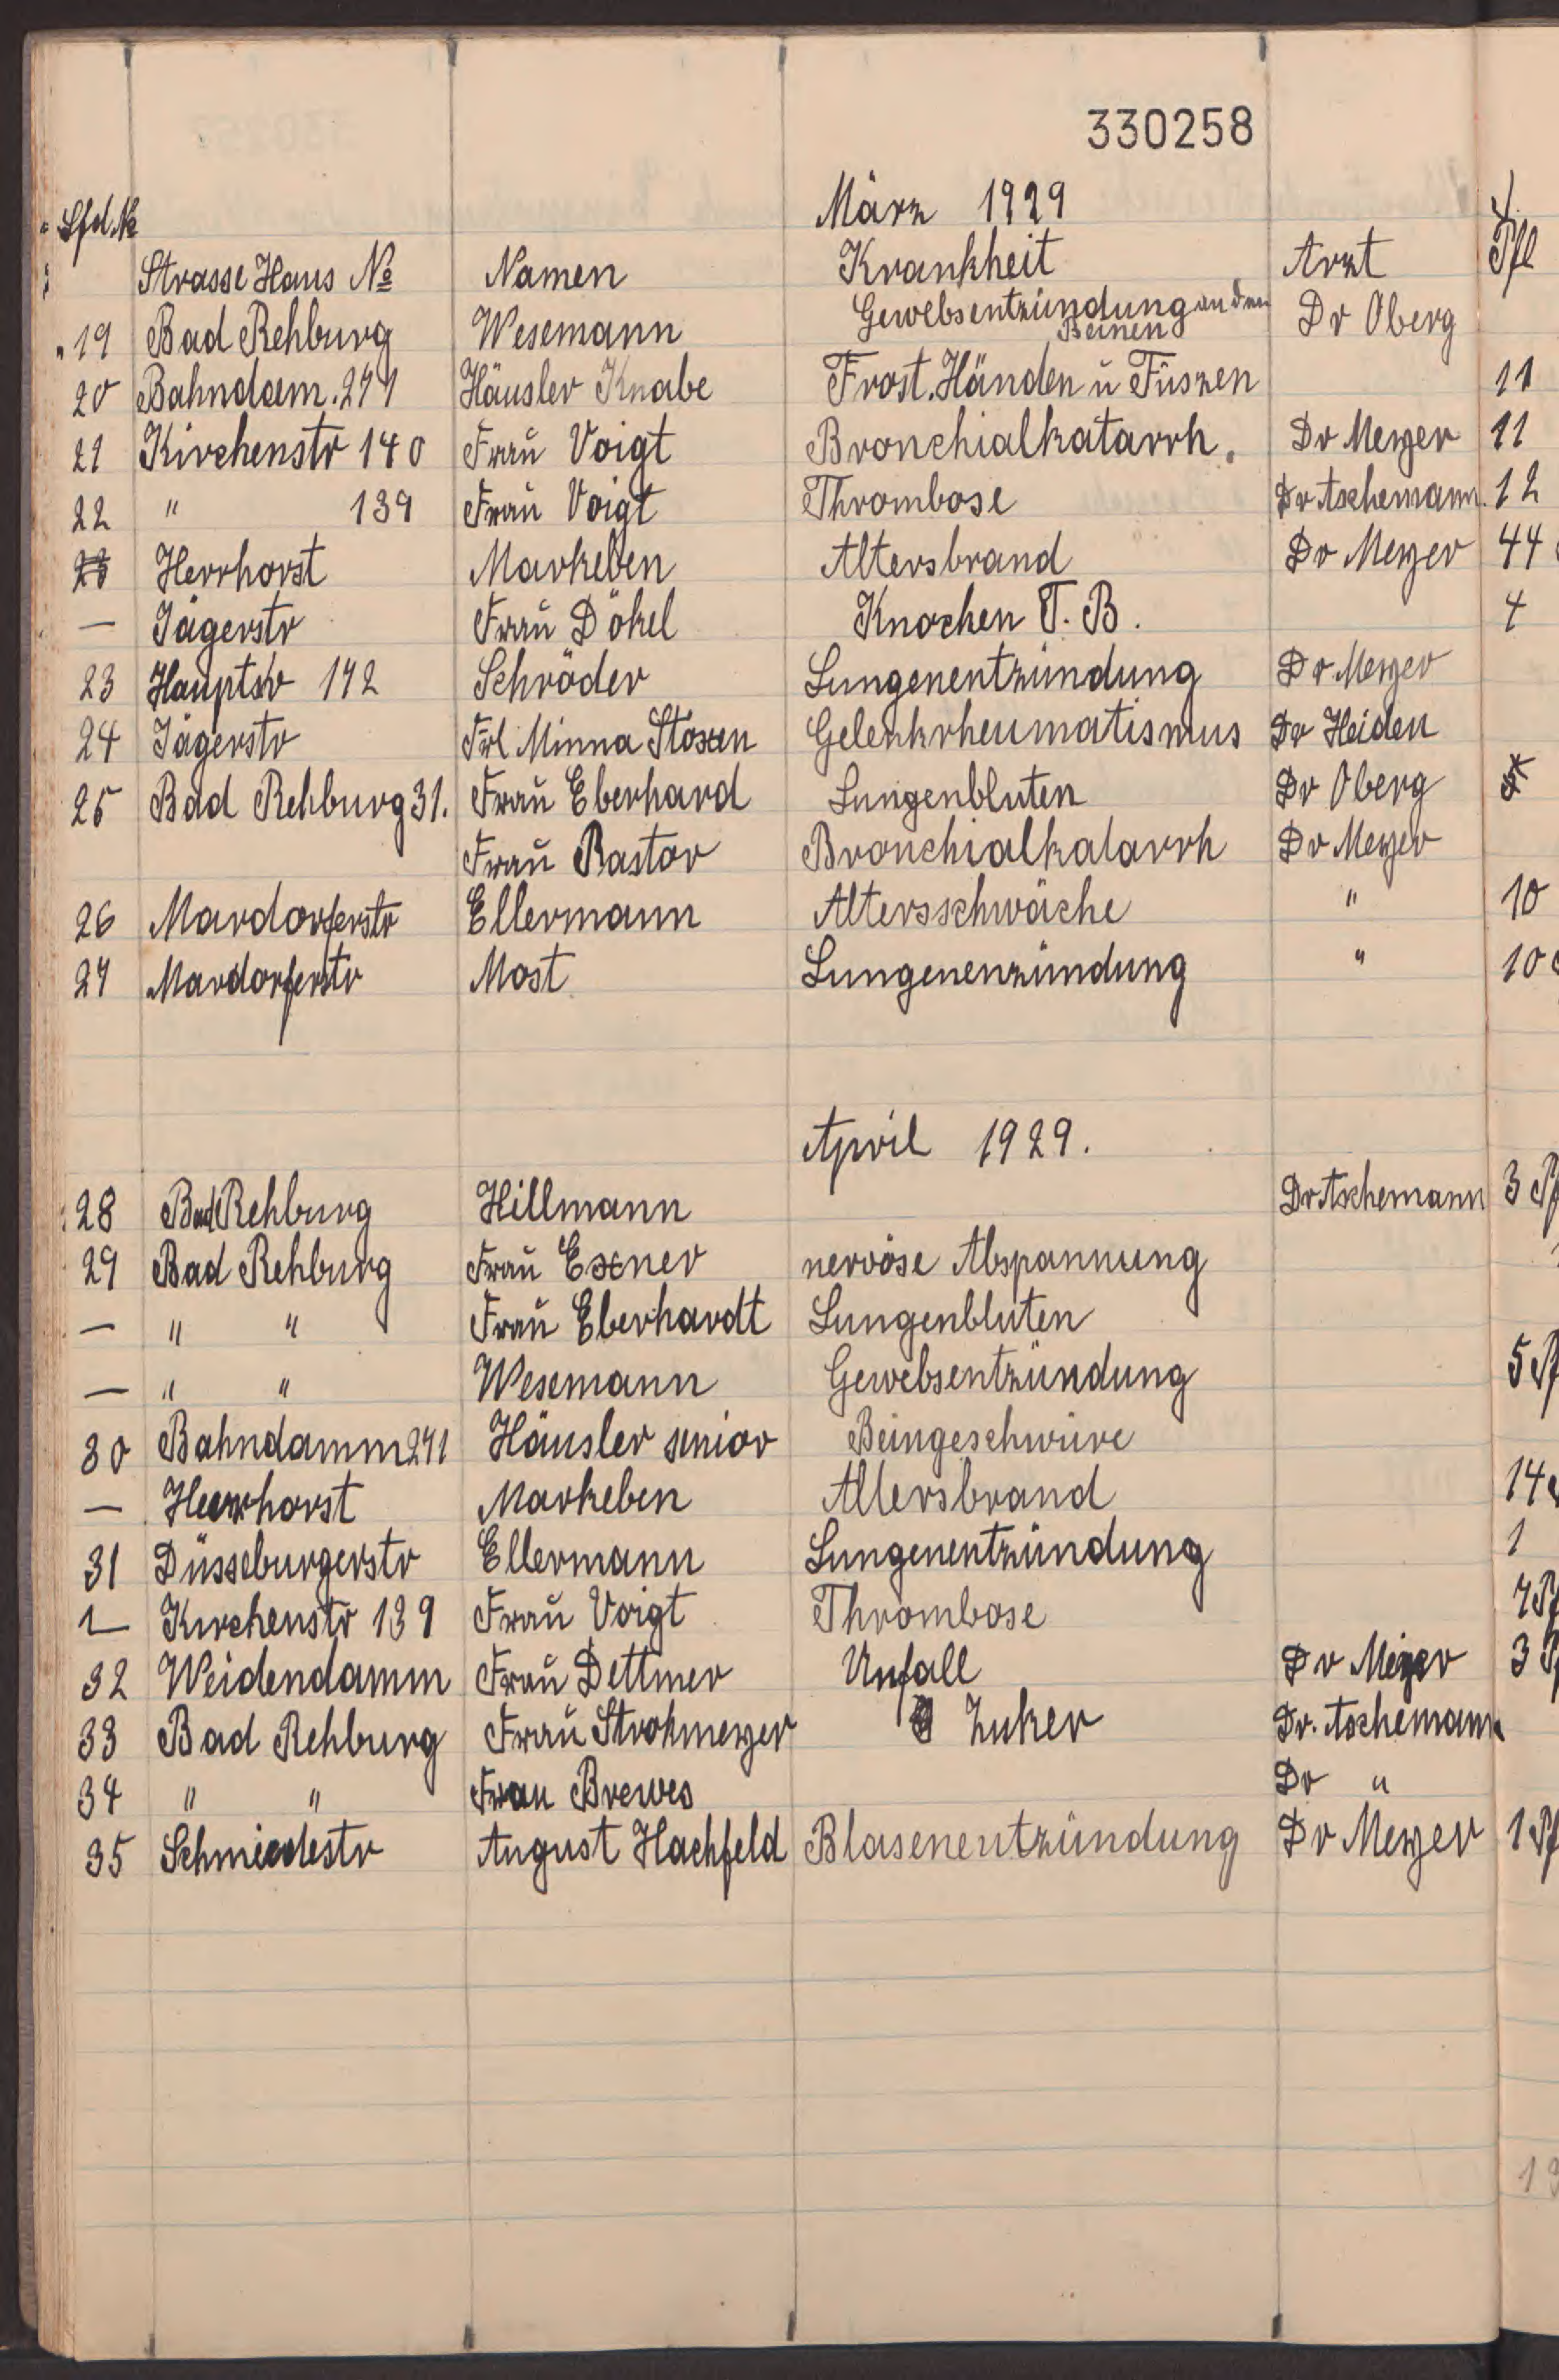 330258
März 1929
Lfd. №
Strasse Haus № Namen Krankheit Arzt Pfl
19 Bad Rehburg Wesemann Gewebsentzündung an den Beinen Dr Oberg
20 Bahndam. 271 Häusler Knabe Frost. Händen ü Füszen 11
21 Kirchenstr 140 Fraü Voigt Bronchialkatarrh. Dr Meyer 11
22 " 139 Fraü Voigt Thrombose Dr Aschemann. 12
23 Herrhorst Markeben Altersbrand Dr Meyer 44
— Jägerstr Fraü Dökel Knochen T. B. 4
23 Hauptstr 172 Schröder Lungenentzündung Dr Meyer
24 Jägerstr Frl Minna Stoxen Gelenkrheumatismus Dr Heiden
25 Bad Rehburg 31. Fraü Eberhard Lungenbluten Dr Oberg
Fraü Pastor Bronchialkatarrh Dr Meyer
26 Mardorferstr Ellermann Altersschwäche " 10
27 Mardorferstr Most Lungenenzündung " 10
April 1929.
28 Bad Rehburg Hillmann Dr Aschemann 3 Pf
29 Bad Rehburg Fraü Exner nervöse Abspannung
— " " Fraü Eberhardt Lungenbluten
— " " Wesemann Gewebsentzündung 5 Pf
30 Bahndamm 271 Häusler senior Beingeschwüre
— Heerhorst Markeben Altersbrand 14
31 Düsseburgerstr Ellermann Lungenentzündung 1
— Kirchenstr 139 Fraü Voigt Thrombose 7 Pf
32 Weidendamm Fraü Dettmer Unfall Dr Meyer 3 Pf
33 Bad Rehburg Fraü Strohmeyer Zuker Dr. Aschemann
34 " " Frau Brewes Dr "
35 Schmiedestr August Hachfeld Blasenentzündung Dr Meyer 1 Pf